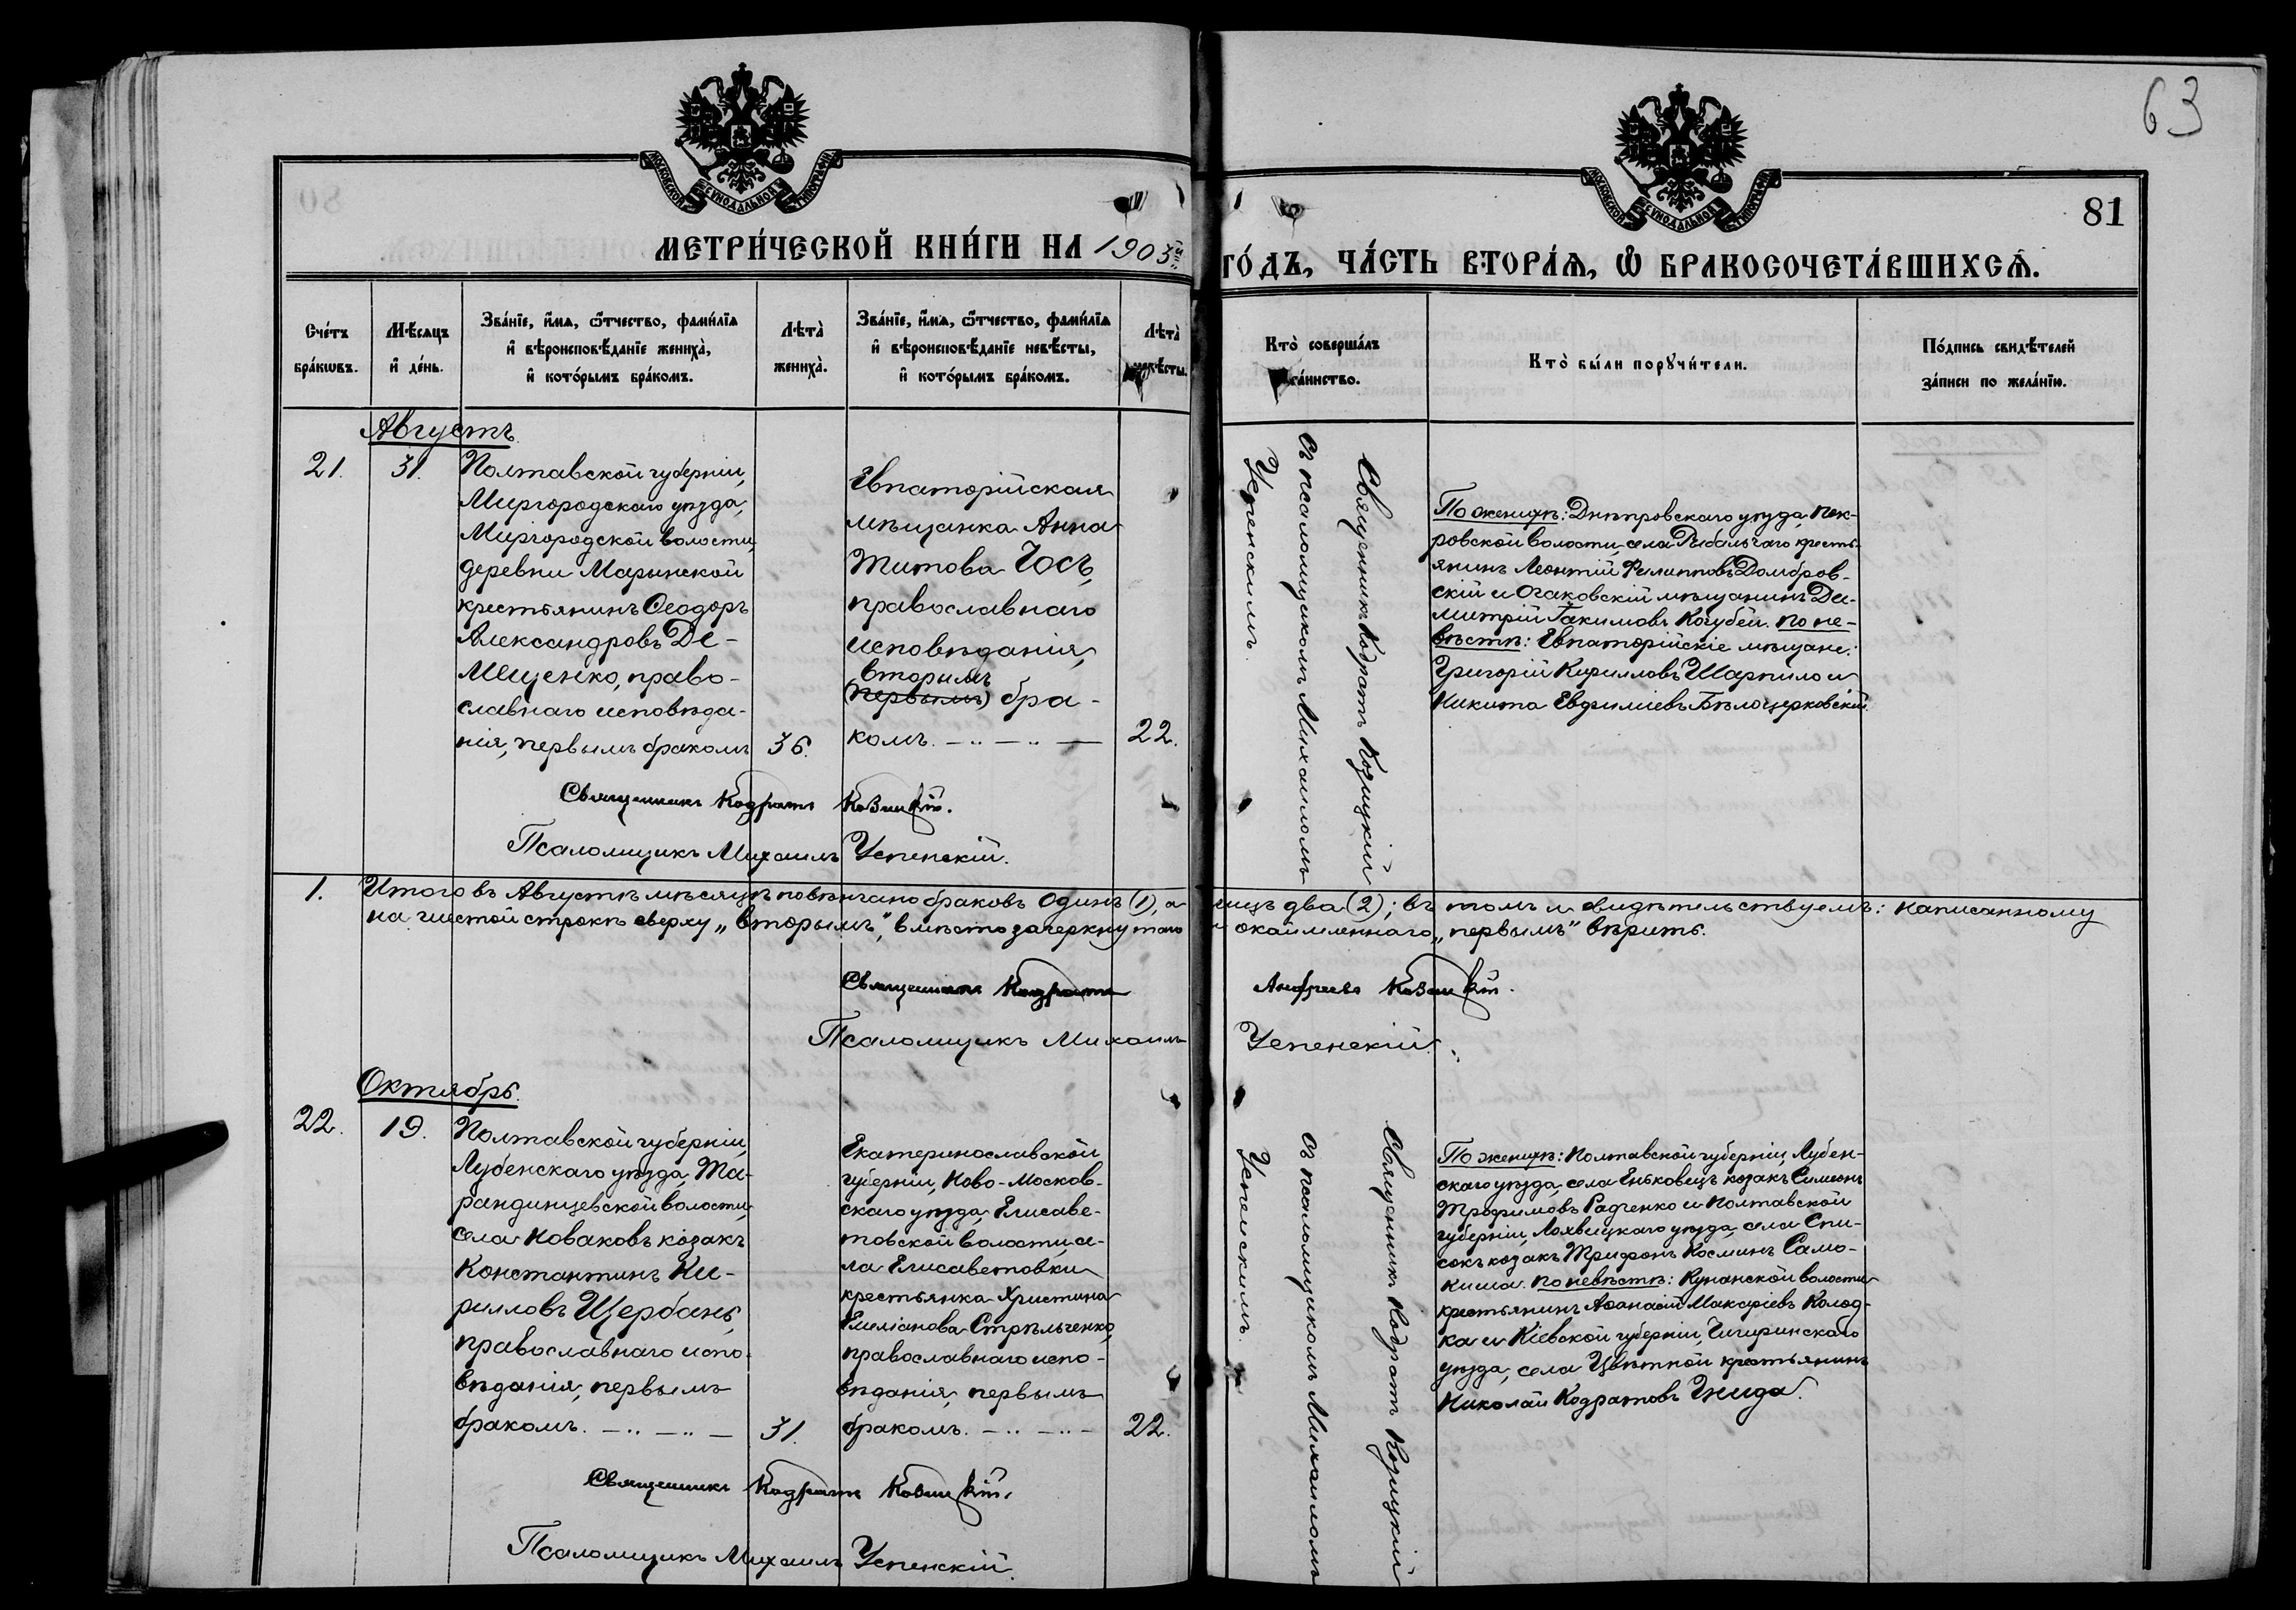 63
МОСКОВСКОЙ СѴНОДАЛЬНОЙ ТИПОГРАФІИ
МОСКОВСКОЙ СѴНОДАЛЬНОЙ ТИПОГРАФІИ
81
МЕТРИ́ЧЕСКОЙ КНИ́ГИ НА 1903й
ГО́ДЪ, ЧА́СТЬ ВТОРА́Ѧ, Ѡ҆ БРАКОСОЧЕТА́ВШИХСѦ.
Сче́тъ
бра́кωвъ.
Мѣ́сяцъ
и҆ де́нь.
Зва́нїе, и҆́мѧ, ѻ҆́тчество, фами́лїѧ
и҆ вѣроисповѣ́данїе жениха̀,
и҆ кото́рымъ бра́комъ.
Лѣта̀
жениха̀.
Зва́нїе, и҆́мѧ, ѻ҆́тчество, фами́лїѧ
и҆ вѣроисповѣ́данїе невѣ́сты,
и҆ кото́рымъ бра́комъ.
Лѣта̀
невѣ́сты.
Кто̀ соверша́лъ
та́инство.
Кто̀ бы́ли порꙋчи́тели.
По́дпись свидѣ́телей
за́писи по жела́нїю.
Августъ.
21.
31.
Полтавской губерніи,
Миргородскаго уѣзда,
Миргородской волости,
деревни Марьинской
крестьянинъ Ѳеодоръ
Александровъ Де-
мещенко, право-
славнаго исповѣда-
нія, первымъ бракомъ
36.
Евпаторійская
мѣщанка Анна
Титова Юсъ,
православнаго
исповѣданія,
вторымъ
(первымъ) бра-
комъ. — .. — .. —
22.
Священникъ Кодратъ Козицкій
съ псаломщикомъ Михаиломъ
Успенскимъ.
По женихѣ: Днѣпровскаго уѣзда, Пок-
ровской волости, села Рыбальчаго кресть-
янинъ Леонтій Филипповъ Домбров-
скій и Очаковскій мѣщанинъ Ди-
митрій Іакимовъ Кочубей. По не-
вѣстѣ: Евпаторійскіе мѣщане:
Григорій Кирилловъ Шарпило и
Никита Евѳиміевъ Бѣлоцерковскій.
Священникъ Кодратъ Козицкій.
Псаломщикъ Михаилъ Успенскій.
1.
Итого въ Августѣ мѣсяцѣ повѣнчано браковъ одинъ (1), а лицъ два (2); въ томъ и свидѣтельствуемъ: написанному
на шестой строкѣ сверху „вторымъ", вмѣсто зачеркнутаго и окаймленнаго „первымъ" вѣрить.
Священникъ Кодратъ Андреевъ Козицкій.
Псаломщикъ Михаилъ Успенскій.
Октябрь.
22.
19.
Полтавской губерніи,
Лубенскаго уѣзда, Та-
рандинцевской волости,
села Новаковъ козакъ
Константинъ Ки-
рилловъ Щербань,
православнаго испо-
вѣданія, первымъ
бракомъ. — .. — .. —
31.
Екатеринославской
губерніи, Ново-Москов-
скаго уѣзда, Елисаве-
товской волости, се-
ла Елисаветовки
крестьянка Христина
Емеліанова Стрѣльченко,
православнаго испо-
вѣданія, первымъ
бракомъ. — .. — .. —
22.
Священникъ Кодратъ Козицкій
съ псаломщикомъ Михаиломъ
Успенскимъ.
По женихѣ: Полтавской губерніи, Лубен-
скаго уѣзда, села Еньковецъ козакъ Симеонъ
Трофимовъ Радченко и Полтавской
губерніи, Лохвицкаго уѣзда, села Спи-
сокъ козакъ Трифонъ Косминъ Само-
киша. По невѣстѣ: Кунанской волости
крестьянинъ Аѳанасій Макаріевъ Колод-
ка и Кіевской губерніи, Чигиринскаго
уѣзда, села Цвѣтной крестьянинъ
Николай Кодратовъ Гнида.
Священникъ Кодратъ Козицкій.
Псаломщикъ Михаилъ Успенскій.